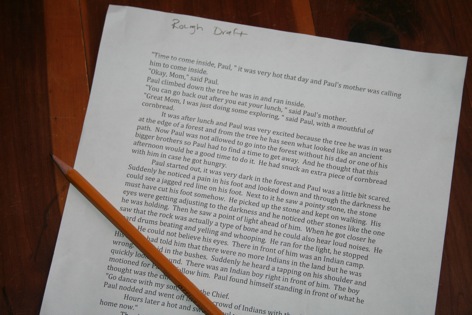 Rough Draft
"Time to come inside, Paul, " it was very hot that day and Paul's mother was calling
him to come inside.
"Okay, Mom," said Paul.
Paul climbed down the tree he was in and ran inside.
"You can go back out after you eat your lunch, " said Paul's mother.
"Great Mom, I was just doing some exploring, " said Paul, with a mouthful of
cornbread.
It was after lunch and Paul was very excited because the tree he was in was
at the edge of a forest and from the tree he has seen what looked like an ancient
path. Now Paul was not allowed to go into the forest without his dad or one of his
bigger brothers so Paul had to find a time to get away. And he thought that this
afternoon would be a good time to do it. He had snuck an extra piece of cornbread
with him in case he got hungry.
Paul started out, it was very dark in the forest and Paul was a little bit scared.
Suddenly he noticed a pain in his foot and looked down and through the darkness he
could see a jagged red line on his foot. Next to it he saw a pointy stone, the stone
must have cut his foot somehow. He picked up the stone and kept on walking. His
eyes were getting adjusting to the darkness and he noticed other stones like the one
he was holding. Then he saw a point of light ahead of him. When he got closer he
saw that the rock was actually a type of bone and he could also hear loud noises. He
heard drums beating and yelling and whooping. He ran for the light, he stopped
He could not believe his eyes. There in front of him was an Indian camp.
His had told him that there were no more Indians in the land but he was
wrong hid in the bushes. Suddenly he heard a tapping on his shoulder and
quickly looked around. There was an Indian boy right in front of him. The boy
motioned for follow him. Paul found himself standing in front of what he
thought was the Chief.
"Go dance with my son the Chief.
Paul nodded and went off crowd of Indians with
Hours later a hot and
home now."